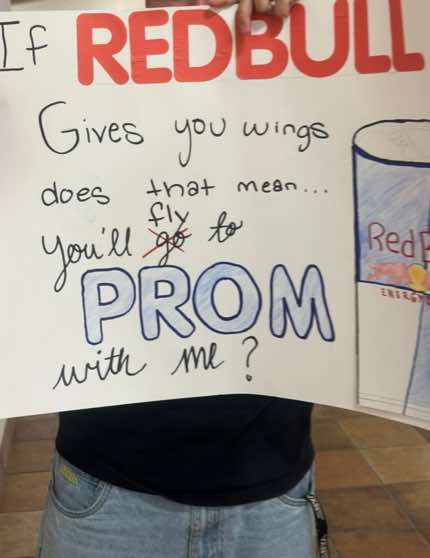 If REDBULL
Gives you wings
does that mean...
fly
You'll go to
PROM
with me?
Red
ENERGY